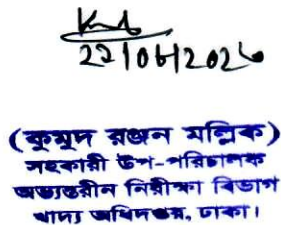 22/06/2026
(কুমুদ রঞ্জন মল্লিক)
সহকারী উপ-পরিচালক
অভ্যন্তরীন নিরীক্ষা বিভাগ
খাদ্য অধিদপ্তর, ঢাকা।